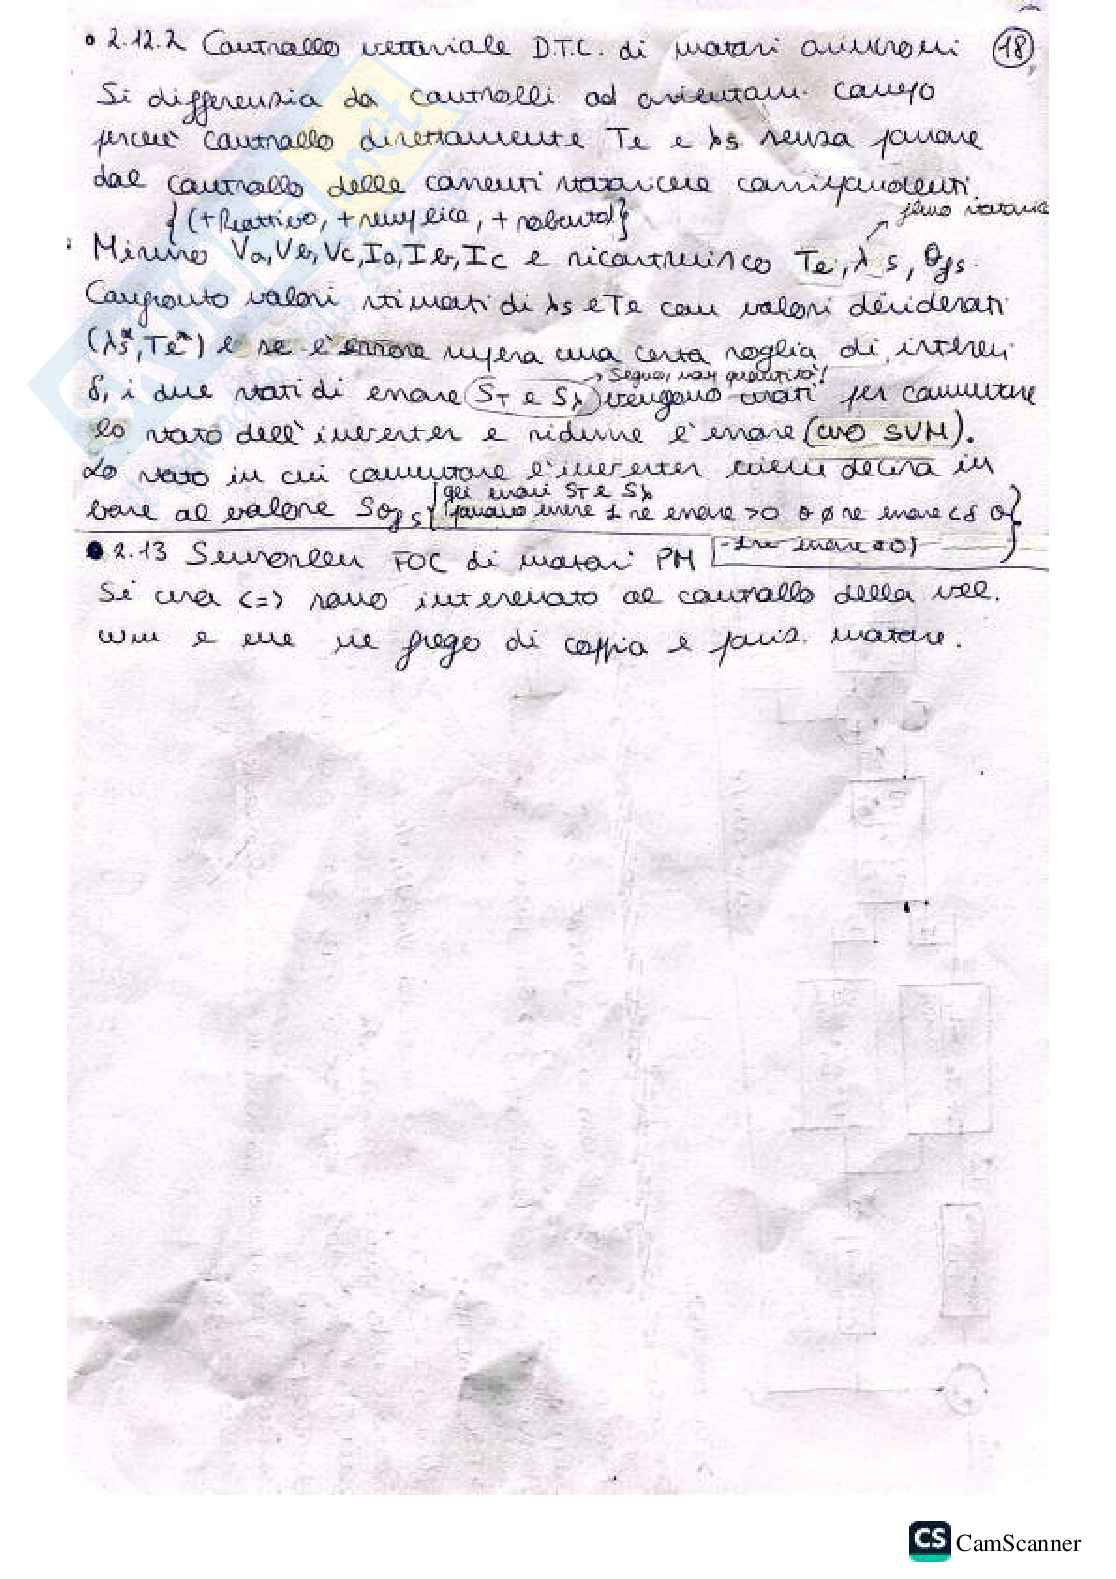 • 2.12.2 Controllo vettoriale D.T.C. di motori asincroni (18)
Si differenzia da controlli ad orientam. campo
perchè controllo direttamente Te e λs senza passare
dal controllo delle correnti statoriche corrispondenti.
{(+reattivo, +semplice, +robusto)}
flusso statorico
Misuro Va, Vb, Vc, Ia, Ib, Ic e ricostruisco Te, λs, θfs.
Confronto valori stimati di λs e Te con valori desiderati
(λs*, Te*) e se l'errore supera una certa soglia di isteresi
→ Segno, non quantità!
δ, i due stati di errore (ST e Sλ) vengono usati per commutare
lo stato dell'inverter e ridurre l'errore (uso SVM).
Lo stato in cui commutare l'inverter viene deciso in
base al valore Sθfs {gli errori ST e Sλ
possono essere 1 se errore >0 o ø se errore <δ o}
-1 se errore <0)
• 2.13 Sensorless FOC di motori PM
Si usa <=> sono interessato al controllo della vel.
wm e me ne frego di coppia e posiz. motore.
CS CamScanner